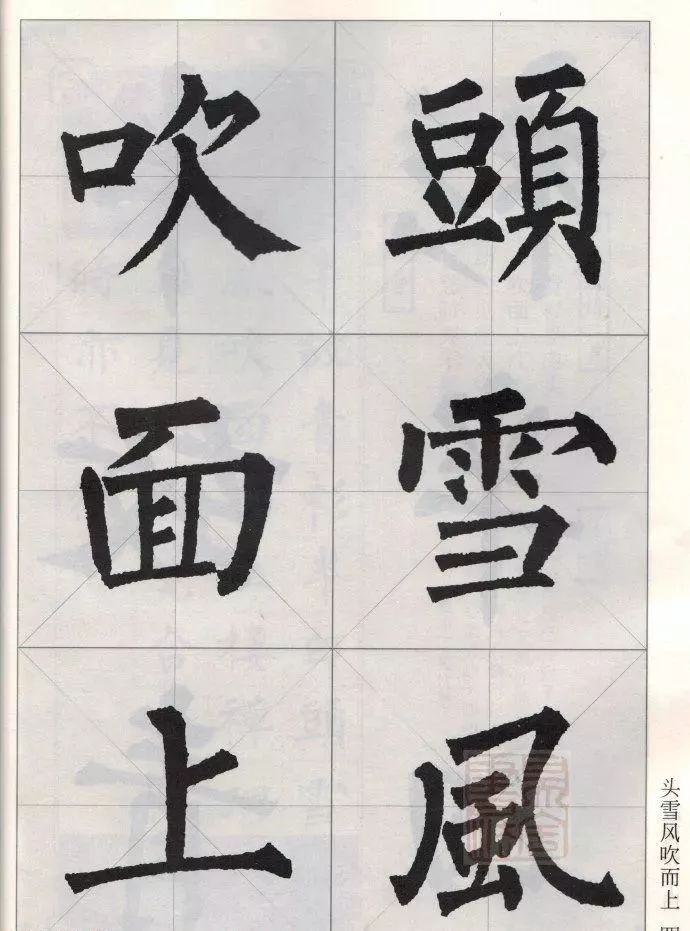 頭雪風
吹面上
头雪风吹而上